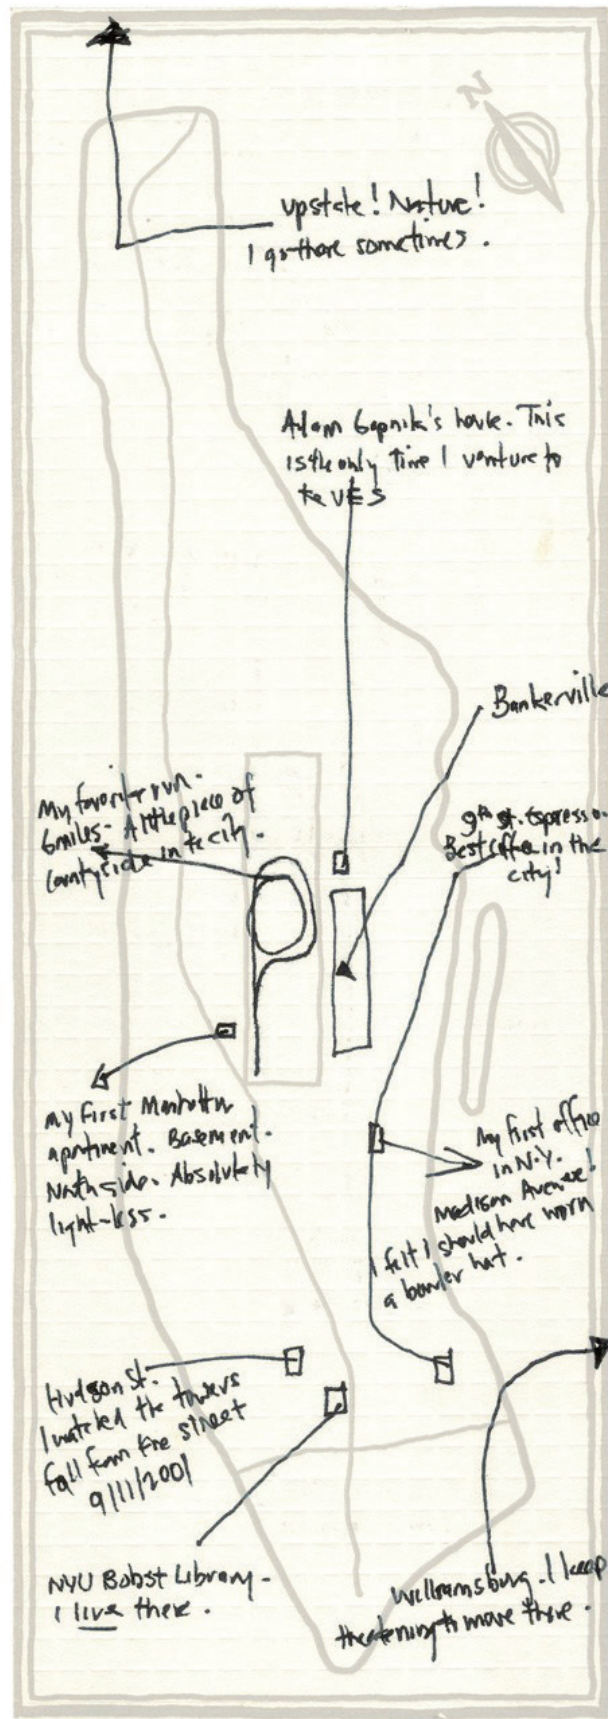 N
upstate! Nature!
I go there sometimes.
Adam Gopnik's house. This
is the only time I venture to
the UES
Bankerville
My favorite run.
6 miles. A little piece of
countryside in the city.
9th st. Espresso.
Best coffee in the
city!
my first Manhattan
apartment. Basement.
North side. Absolutely
light-less.
My first office
in N.Y.
Madison Avenue!
I felt I should have worn
a bowler hat.
Hudson St.
I watched the towers
fall from the street
9/11/2001
NYU Bobst Library.
I live there.
Williamsburg. I keep
threatening to move there.